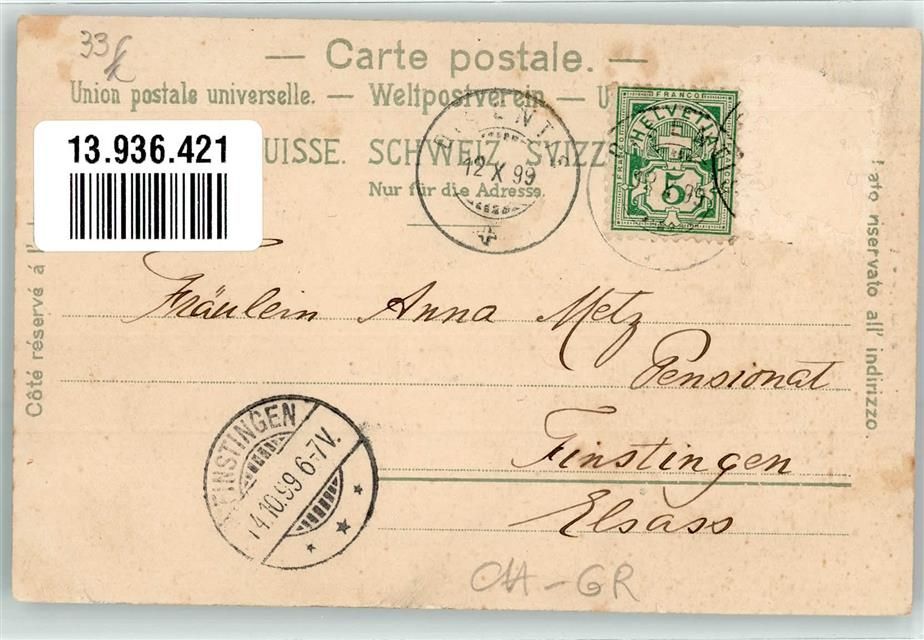 33
— Carte postale. —
Union postale universelle. — Weltpostverein — U
13.936.421
UISSE. SCHWEIZ. SVIZZ
Nur für die Adresse.
DISENTIS
12 X 99
FRANCO
HELVETIA
5
Côté réservé à l'
lato riservato all' indirizzo.
Fräulein Anna Metz
Pensionat
Finstingen
Elsass
FINSTINGEN
14.10.99 6-7V.
CH-GR